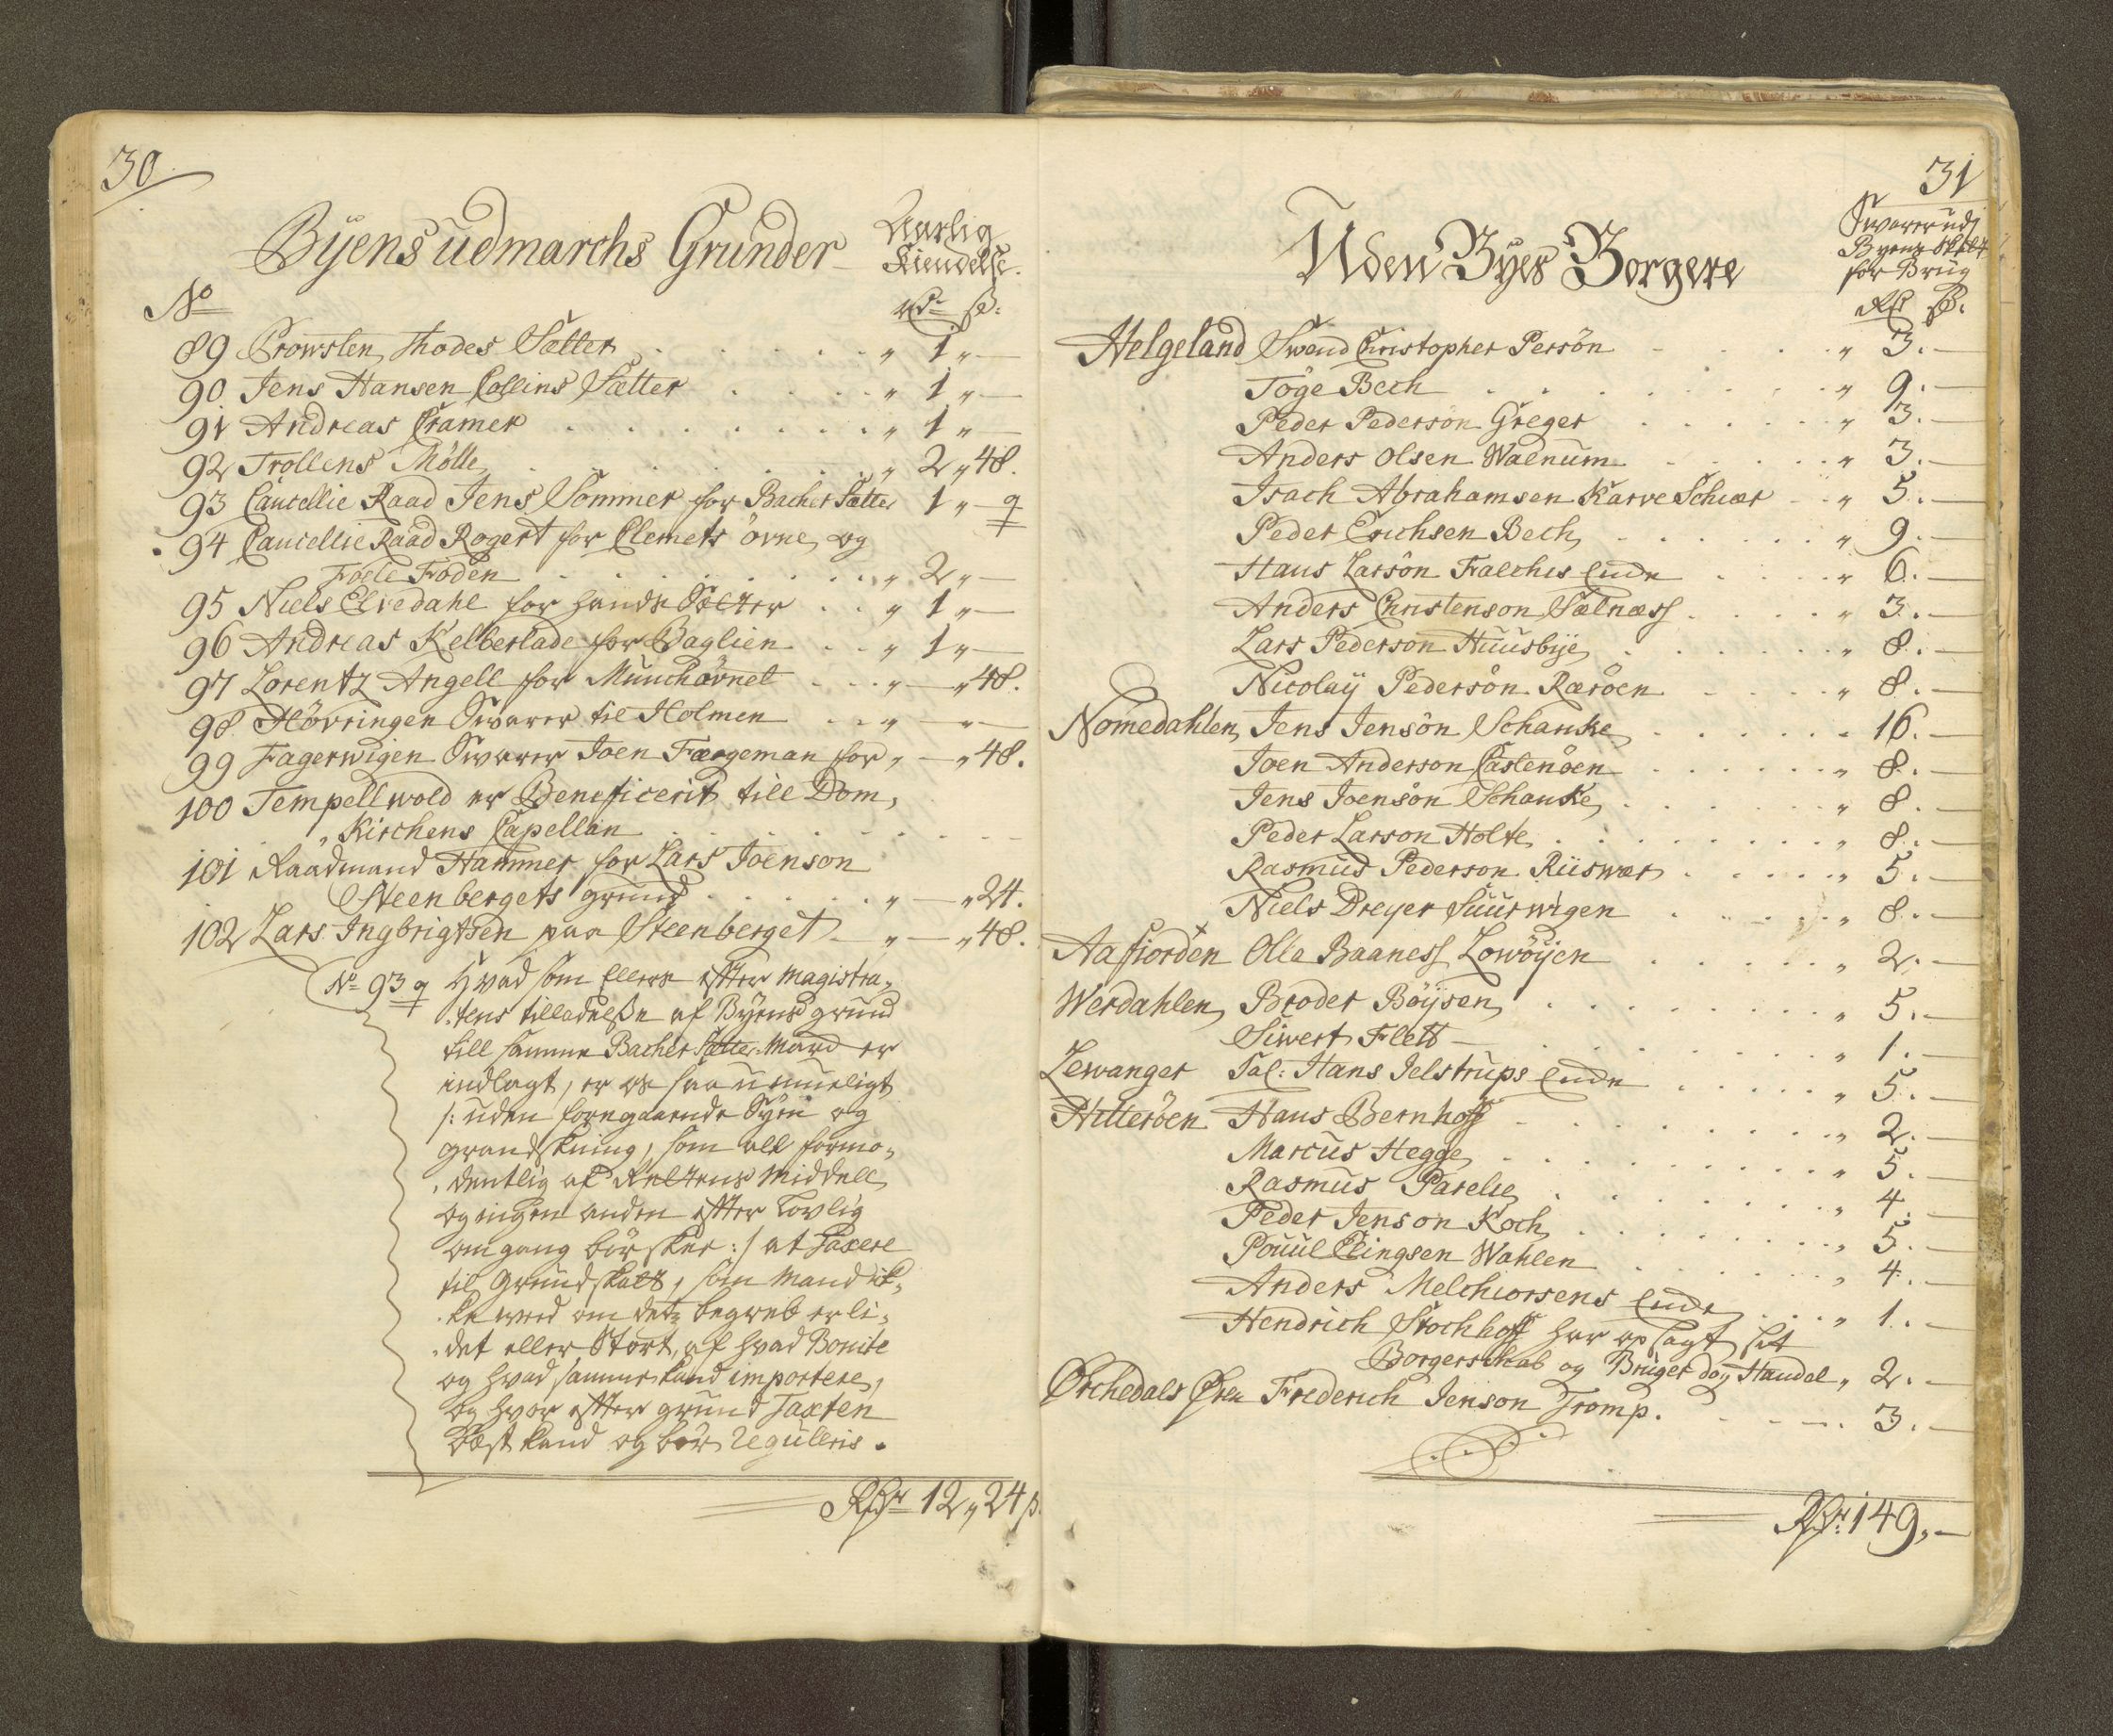 30
Byens udmarchs Grunder
Aarlig
Kiendelse.
No
rdr ß:
89 Prowsten Thodes Sætter . . . . . . . „ 1 „ —
90 Jens Hansen Collins Sætter . . . . . „ 1 „ —
91 Andreas Cramer . . . . . . . . . „ 1 „ —
92 Trollens Mölle . . . . . . . . . „ 2 „ 48.
93 Cancellie Raad Jens Sommer for Bacher Sætter 1 „ — q
94 Cancellie Raad Rogert for Clemets örne og
Foele Foden . . . . . . . . . „ 2 „ —
95 Niels Elvedahl for hands Sætter . . „ 1 „ —
96 Andreas Kelberlade for Baglien . . „ 1 „ —
97 Lorentz Angell for Munchövnet . . . „ — „ 48.
98 Hövringen Swarer til Holmen . . . „ — „ —
99 Fagerwigen Swarer Joen Færgeman for „ — „ 48.
100 Tempellwold er Beneficerit till Dom„
„Kirchens Capellan . . . . . . . . .
101 Raadmand Hammer for Lars Joenson
Steenbergets grund . . . . . . „ — „ 24.
102 Lars Ingbrigtsen paa Steenberget — „ — „ 48.
No 93 q Hvad som Ellers efter Magistra„
„tens tilladelße af Byens grund
till samme Bacher Sætter Marck er
indlagt, er os saa umueligt
/: uden foregaaende Syen og
grandskning, som all formo„
„dentlig af Rettens Middell
og ingen anden efter Lovlig
omgang bör skee :/ at Taxere
til Grundskatt, som mand ik„
„ke weed om detz begreb er li„
„det eller Stort, af hvad Bonite
og hvad samme kand importere,
og hvor efter grund Taxten
bæst kand og bör Regulleris.
Rdr 12 „ 24 ß.
31
Uden Byes Borgere
Swarer udj
Byens Skatt
for Brug
Rd ß.
Helgeland Swend Christopher Persön . . . . „ 3. —
Töge Bech . . . . . . . . . „ 9. —
Peder Pederson Greger . . . . . . „ 3. —
Anders Olsen Walnum . . . . . „ 3. —
Isach Abrahamsen Karve Schiær . . „ 5. —
Peder Erichsen Bech . . . . . . „ 9. —
Hans Larsön Falches Encke . . . . „ 6. —
Anders Christenson Sælnæss . . . . „ 3. —
Lars Pederson Huusbye . . . . . . „ 8. —
Nicolay Pederson Raröen . . . . . „ 8. —
Nomedahlen Jens Jensön Schanke . . . . . . „ 16. —
Joen Anderson Castenöen . . . . . . „ 8. —
Jens Joensön Schanke . . . . . . „ 8. —
Peder Larson Holte . . . . . . . . „ 8. —
Rasmus Pederson Riiswær . . . . . „ 5. —
Niels Dreyer Suurwigen . . . . . „ 8. —
Aafiorden Olle Baaness Lowöyen . . . . . „ 2. —
Werdahlen Broder Böysen . . . . . . . . „ 5. —
Siwert Flett — . . . . . . . . „ 1. —
Lewanger Sal: Hans Jelstrups Encke . . . . . „ 5. —
Hitteröen Hans Bernhoff . . . . . . . . „ 2. —
Marcus Hegge . . . . . . . . . „ 5. —
Rasmus Parelie . . . . . . . . „ 4. —
Peder Jenson Koch . . . . . . . . „ 5. —
Pouul Ellingsen Wahlen . . . . . . „ 4. —
Anders Melchiorsens Encke . . . . „ 1. —
Hendrich Stochhoff har opsagt sit
Borgerschab og Bruger dog Handel „ 2. —
Orchedals Ören Frederich Jenson Tromp. . . . . 3. —
Rdr: 149, —